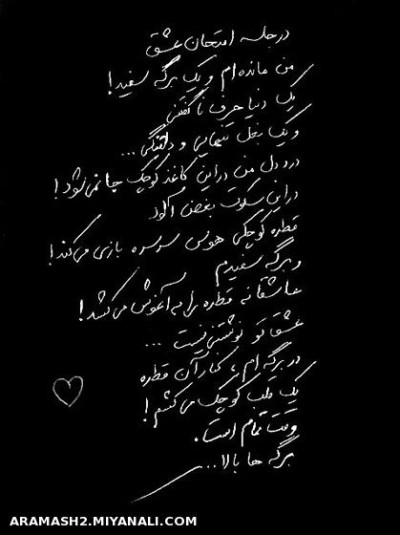 در جلسه امتحان عشق
من مانده‌ام و یک برگه سفید!
یک دنیا حرف ناگفتنی
و یک بغل تنهایی و دلتنگی...
درد دل من در این کاغذ کوچک جا نمی‌شود!
در این سکوت بغض آلود
قطره کوچکی هوس سرسره بازی می‌کند!
و برگه سفیدم
عاشقانه قطره را به آغوش می‌کشد!
عشق تو نوشتنی نیست...
در برگه‌ام، کنار آن قطره
یک قلب کوچک می‌کشم!
وقت تمام است.
برگه ها بالا...
ARAMASH2.MIYANALI.COM